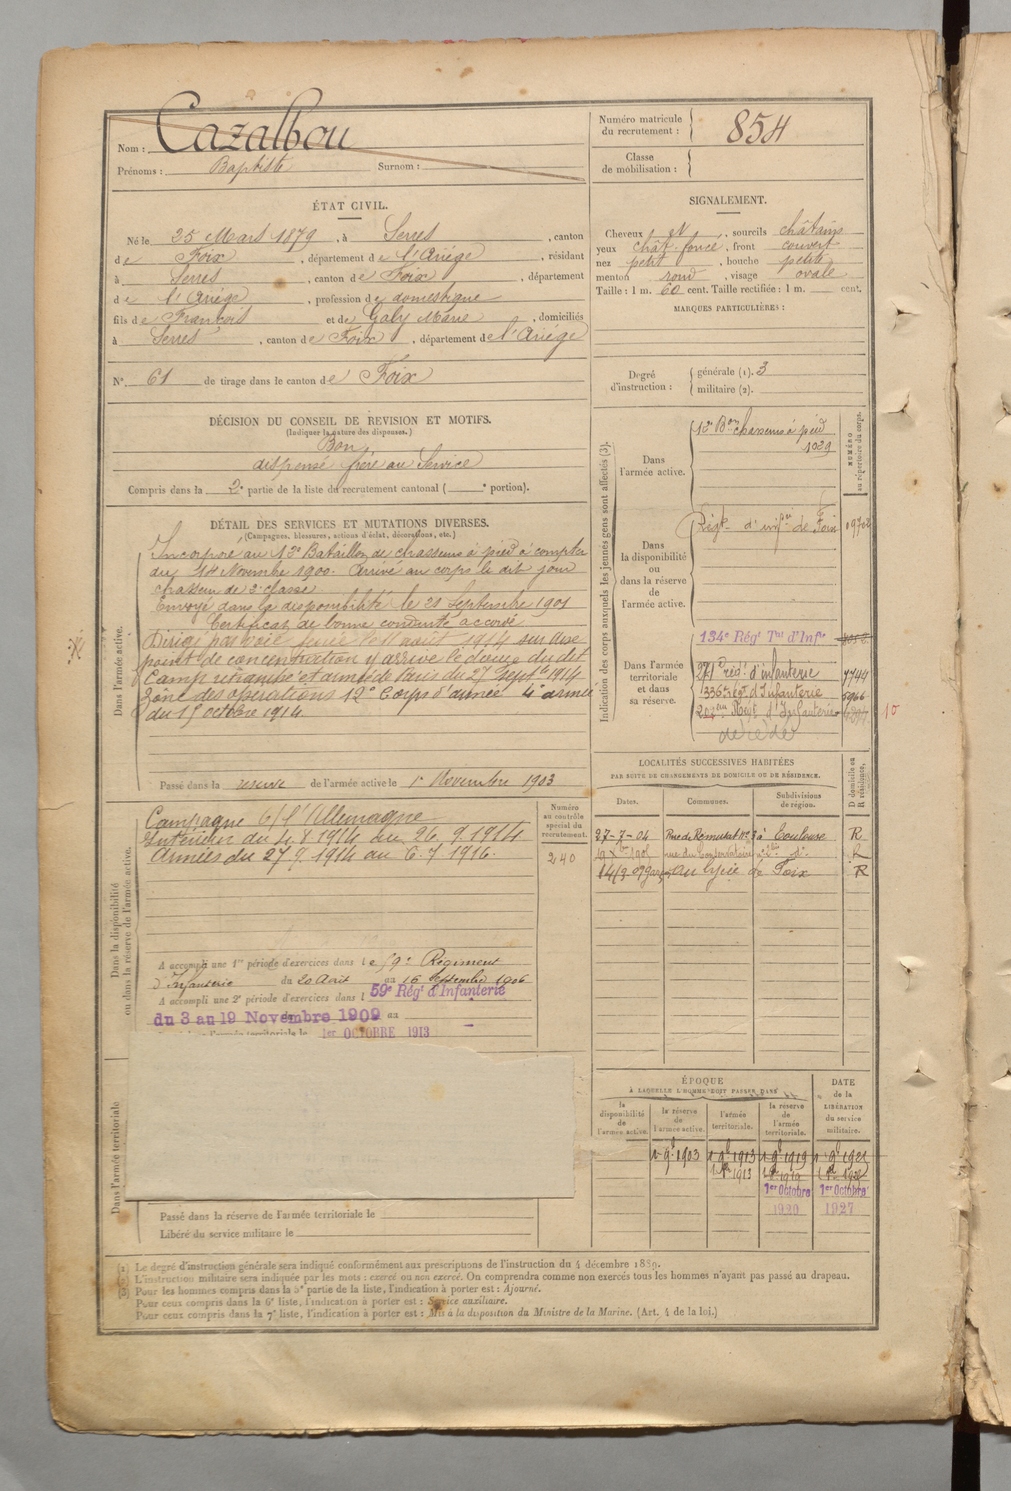 Nom : Cazalbou
Prénoms : Baptiste Surnom :
Numéro matricule du recrutement : 854
Classe de mobilisation :
ÉTAT CIVIL.
Né le 25 Mars 1879, à Serres, canton
de Foix, département de l'Ariège, résidant
à Serres, canton de Foix, département
de l'Ariège, profession de domestique
fils de François et de Galy Marie, domiciliés
à Serres, canton de Foix, département de l'Ariège
N° 61 de tirage dans le canton de Foix
SIGNALEMENT.
Cheveux et, sourcils châtains
yeux chât. foncé, front couvert
nez petit, bouche petite
menton rond, visage ovale
Taille : 1 m. 60 cent. Taille rectifiée : 1 m. cent.
MARQUES PARTICULIÈRES :
Degré d'instruction : générale (1). 3
militaire (2).
DÉCISION DU CONSEIL DE REVISION ET MOTIFS.
(Indiquer la nature des dispenses.)
Bon
dispensé frère au Service
Compris dans la 2e partie de la liste du recrutement cantonal ( e portion).
DÉTAIL DES SERVICES ET MUTATIONS DIVERSES.
(Campagnes, blessures, actions d'éclat, décorations, etc.)
Dans l'armée active.
Incorporé au 12e Bataillon de chasseurs à pied à compter
du 14 Novembre 1900. Arrivé au corps le dit jour
chasseur de 2e classe
Envoyé dans la disponibilité le 21 Septembre 1901
Certificat de bonne conduite accordé
Dirigé par voie ferrée le 11 août 1914 sur une
point de concentration y arrive le du dit
Camp retranché et armée de Paris du 27 Septbre 1914
Zône des opérations 12e Corps d'armée 4e armée
du 15 octobre 1914
Passé dans la réserve de l'armée active le 1er Novembre 1903
Dans la disponibilité ou dans la réserve de l'armée active.
Campagne c/ l'Allemagne
Intérieur du 4 8 1914 au 26 9 1914
Armées du 27 9 1914 au 6.7 1916.
Numéro au contrôle spécial du recrutement.
240
A accompli une 1re période d'exercices dans le 59e Régiment
d'Infanterie du 20 Août au 16 Septembre 1906
A accompli une 2e période d'exercices dans l 59e Régt d'Infanterie
du 3 au 19 Novembre 1909 au
l'armée territoriale le 1er OCTOBRE 1913
Dans l'armée territoriale
Passé dans la réserve de l'armée territoriale le
Libéré du service militaire le
Indication des corps auxquels les jeunes gens sont affectés (3).
NUMÉRO au répertoire du corps.
Dans l'armée active.
12e Bon chasseurs à pied
1029
Dans la disponibilité ou dans la réserve de l'armée active.
Régt d'infrie de Foix
Dans l'armée territoriale et dans sa réserve.
134e Régt Tal d'Infie
271e régt d'infanterie 7744
336e régt d'Infanterie 5966
Régt d'Infanterie
10
LOCALITÉS SUCCESSIVES HABITÉES
PAR SUITE DE CHANGEMENTS DE DOMICILE OU DE RÉSIDENCE.
D domicile ou R résidence.
Dates. Communes. Subdivisions de région.
27-7-04 Rue de Remusat N° 3 à Toulouse R
rue du Conservatoire R
au lycée de Foix R
ÉPOQUE
À LAQUELLE L'HOMME DOIT PASSER DANS
DATE de la LIBÉRATION du service militaire.
la disponibilité de l'armée active.
la réserve de l'armée active.
l'armée territoriale.
la réserve de l'armée territoriale.
1er 9bre 1903 1er 9bre 1913 1er 9bre 1919
1913 1919
1er Octobre 1er Octobre
1920 1927
(1) Le degré d'instruction générale sera indiqué conformément aux prescriptions de l'instruction du 4 décembre 1889.
(2) L'instruction militaire sera indiquée par les mots : exercé ou non exercé. On comprendra comme non exercés tous les hommes n'ayant pas passé au drapeau.
(3) Pour les hommes compris dans la 5e partie de la liste, l'indication à porter est : Ajourné.
Pour ceux compris dans la 6e liste, l'indication à porter est : Service auxiliaire.
Pour ceux compris dans la 7e liste, l'indication à porter est : Mis à la disposition du Ministre de la Marine. (Art. 4 de la loi.)